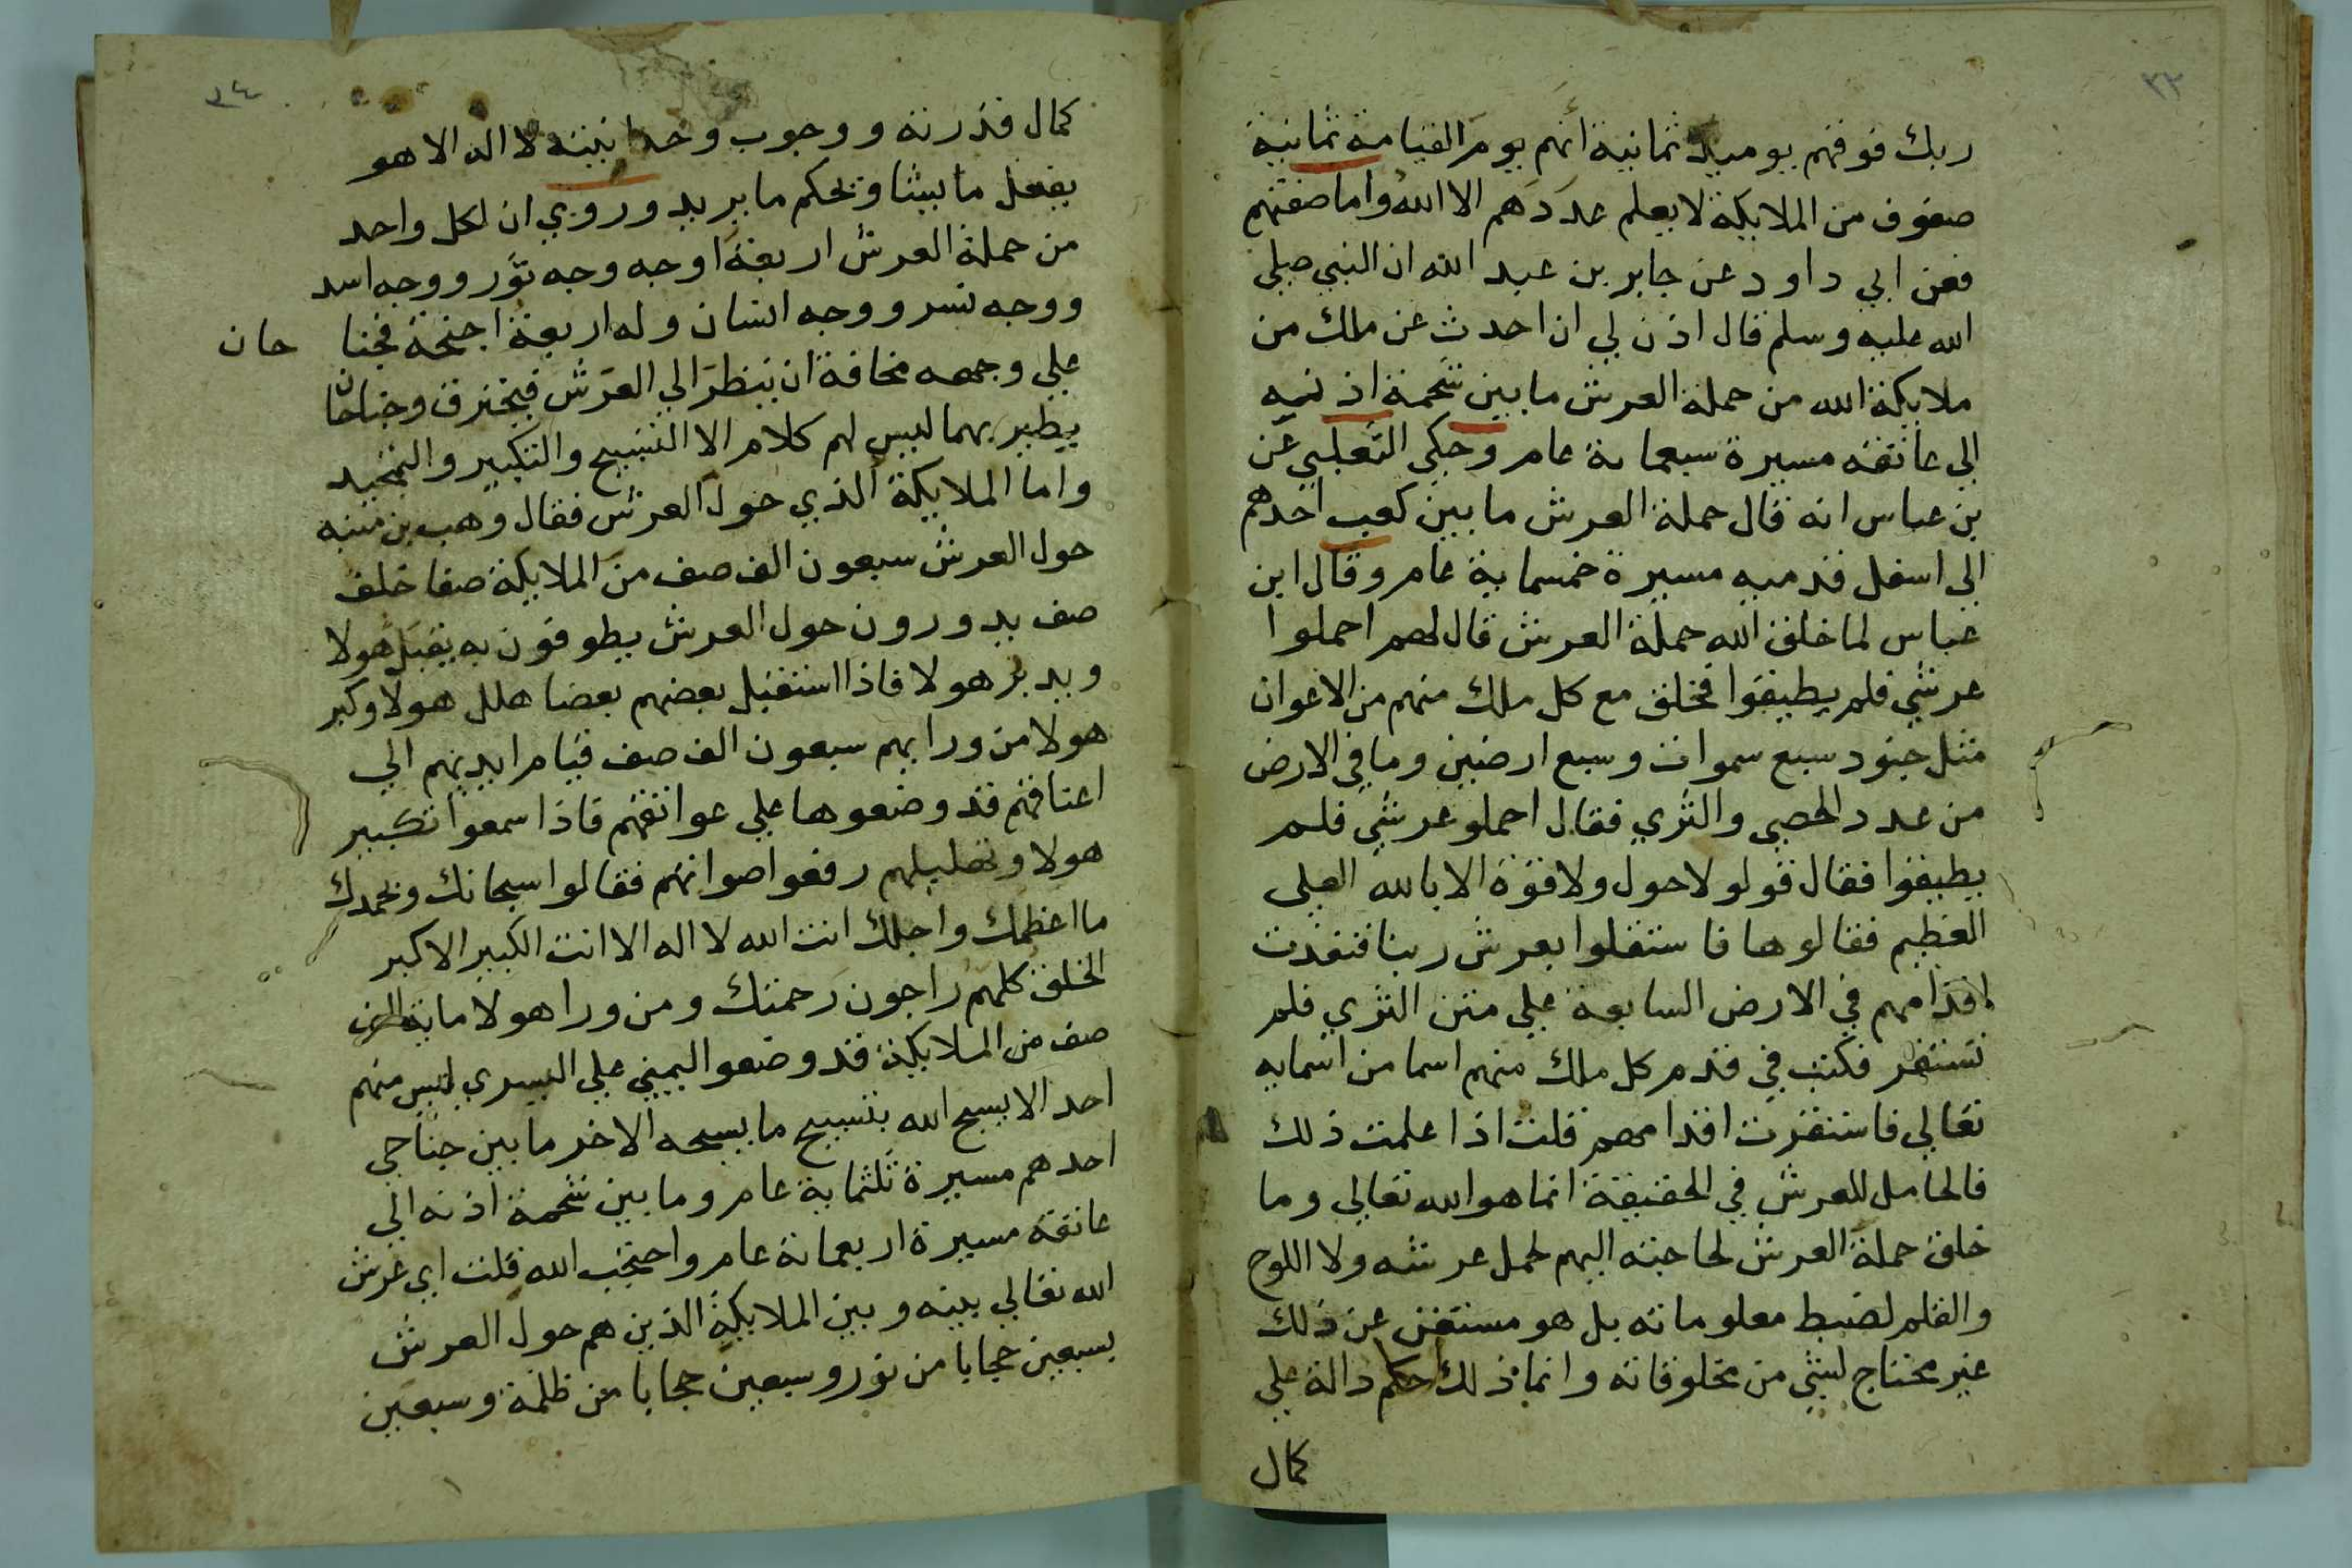 ٣٣
ربك فوقهم يوميد ثمانية أنهم يوم القيامة ثمانية
صفوف من الملايكة لا يعلم عددهم الا الله واما صفتهم
فعن ابي داود عن جابر بن عبد الله ان النبي صلي
الله عليه وسلم قال اذن لي ان احدث عن ملك من
ملايكة الله من حملة العرش ما بين شحمة اذنيه
الى عاتقه مسيرة سبعماية عام وحكي الثعلبي عن
بن عباس انه قال حملة العرش ما بين كعب احدهم
الى اسفل قدميه مسيرة خمسماية عام وقال ابن
عباس لما خلق الله حملة العرش قال لهم احملوا
عرشي فلم يطيقوا فخلق مع كل ملك منهم من الاعوان
مثل جنود سبع سموات وسبع ارضين وما في الارض
من عدد الحصى والثري فقال احملو عرشي فلم
يطيقوا فقال قولو لا حول ولا قوة الا بالله العلى
العظيم فقالوها فاستقلوا بعرش ربنا فنفذت
اقدامهم في الارض السابعة علي متن الثري فلم
تستقر فكتب في قدم كل ملك منهم اسما من اسمايه
تعالي فاستقرت اقدامهم قلت اذا علمت ذلك
فالحامل للعرش في الحقيقة انما هو الله تعالي وما
خلق حملة العرش لحاجته اليهم لحمل عرشه ولا اللوح
والقلم لضبط معلوماته بل هو مستغن عن ذلك
غير محتاج لشي من مخلوقاته وانما ذلك حكم دالة علي
كمال
٣٤
كمال قدرته ووجوب وحدانيته لا اله الا هو
يفعل ما يشا ويحكم ما يريد وروي ان لكل واحد
من حملة العرش اربعة اوجه وجه ثور ووجه اسد
ووجه نسر ووجه انسان وله اربعة اجنحة فجنا حان
علي وجهه مخافة ان ينظر الي العرش فيحترق وجناحان
يطير بهما ليس لهم كلام الا التسبيح والتكبير والتمجيد
واما الملايكة الذي حول العرش فقال وهب بن منبه
حول العرش سبعون الف صف من الملايكة صفا خلف
صف يدورون حول العرش يطوفون به يقبل هولا
ويدبر هولا فاذا استقبل بعضهم بعضا هلل هولا وكبر
هولا من ورايهم سبعون الف صف قيام ايديهم الي
اعناقهم قد وضعوها علي عواتقهم فاذا سمعوا تكبير
هولا وتهليلهم رفعوا اصواتهم فقالوا سبحانك وبحمدك
ما اعظمك واجلك انت الله لا اله الا انت الكبير الاكبر
الخلق كلهم راجون رحمتك ومن ورا هولا ماية الف
صف من الملايكة قد وضعوا اليمني علي اليسري ليس منهم
احد الا يسبح الله بتسبيح ما يسبحه الاخر ما بين جناحي
احدهم مسيرة ثلثماية عام وما بين شحمة اذنه الي
عاتقه مسيرة اربعماية عام واحتجب الله قلت اي عرش
الله تعالي بينه وبين الملايكة الذين هم حول العرش
بسبعين حجابا من نور وسبعين حجابا من ظلمة وسبعين